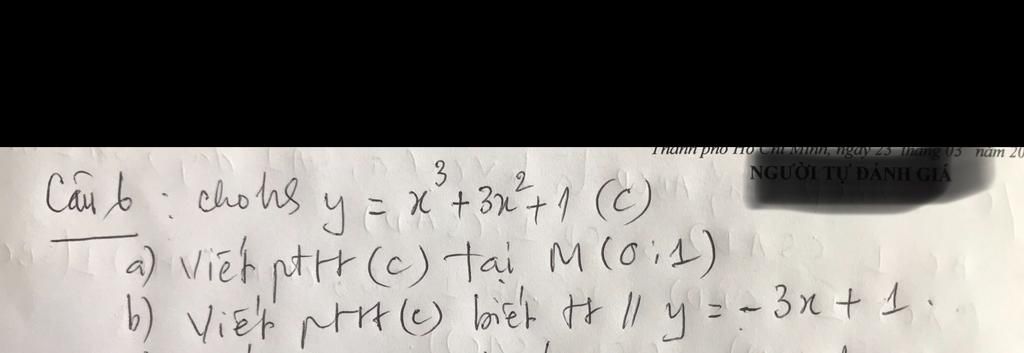 Thành phố Hồ Chí Minh, ngày 23 tháng 03 năm 20
NGƯỜI TỰ ĐÁNH GIÁ
Câu 6 : cho hs y = x³ + 3x² + 1 (C)
a) Viết pttt (C) tại M (0;1)
b) Viết pttt (C) biết tt // y = -3x + 1.